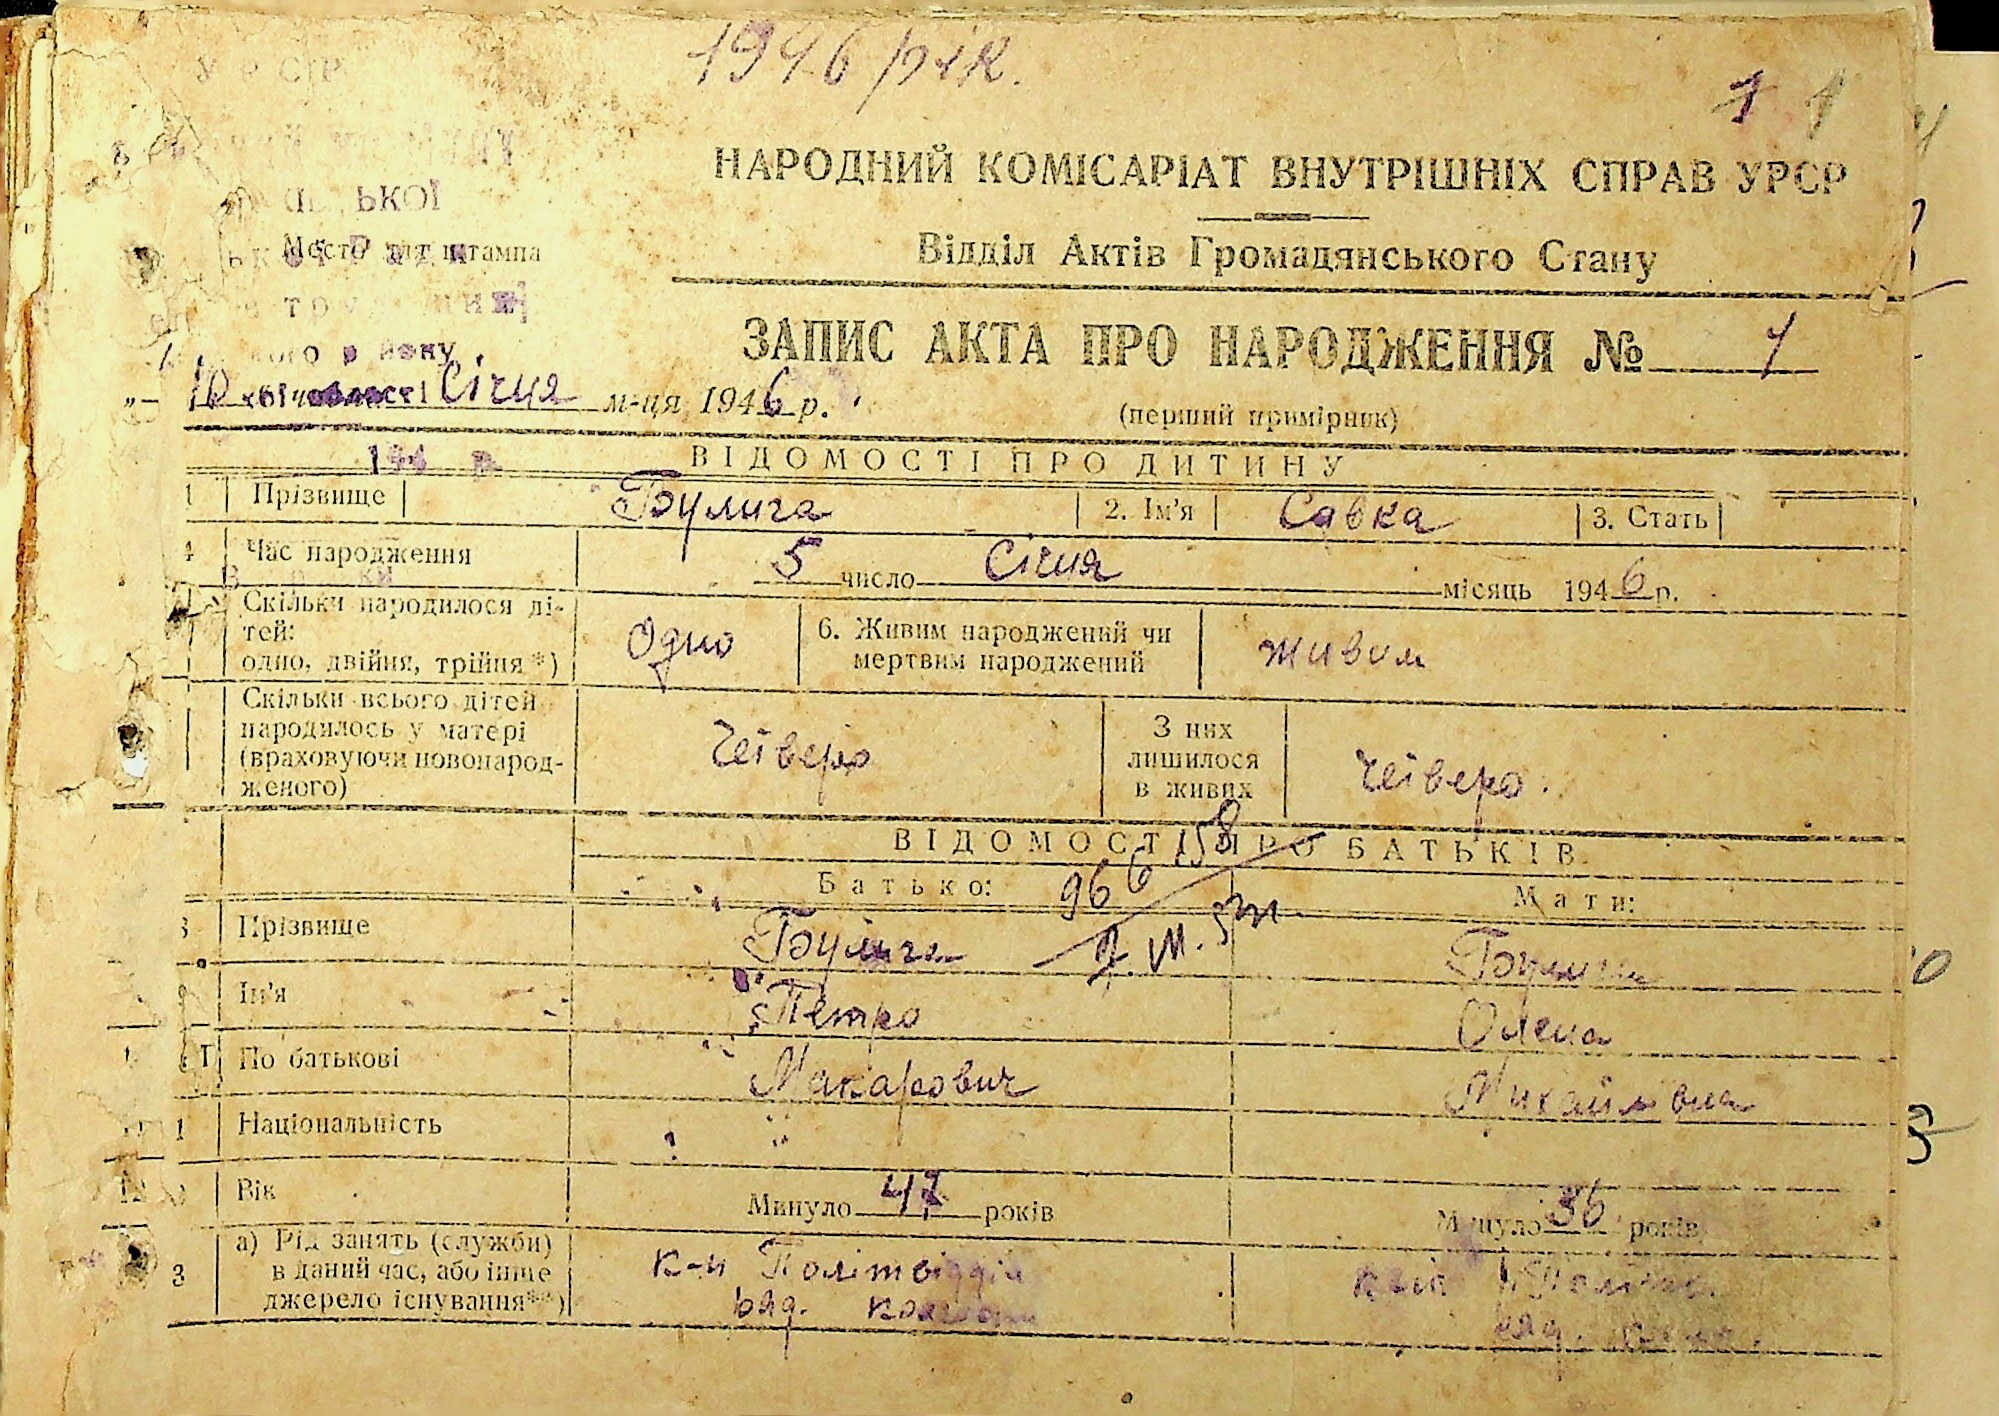 1946 рік.
1 1
УРСР
НАРОДНИЙ КОМІСАРІАТ ВНУТРІШНІХ СПРАВ УРСР
ЬКОЇ
Место для штампа
Відділ Актів Громадянського Стану
ЗАПИС АКТА ПРО НАРОДЖЕННЯ № 1
„ 10 Січня м-ця 1946 р.
(перший примірник)
194 р.
ВІДОМОСТІ ПРО ДИТИНУ
1 Прізвище Булига 2. Ім'я Савка 3. Стать
4 Час народження 5 число Січня місяць 1946 р.
Скільки народилося ді-
тей:
одно, двійня, трійня*) Одно 6. Живим народжений чи
мертвим народжений живим
Скільки всього дітей
народилось у матері
(враховуючи новонарод-
женого) Четверо З них
лишилося
в живих Четверо.
ВІДОМОСТІ ПРО БАТЬКІВ
Батько: 966 158 Мати:
8 Прізвище Булига Булига
9 Ім'я Петро Олена
По батькові Макарович Михайлівна
11 Національність
12 Вік Минуло 47 років Минуло 36 років
3 а) Рід занять (служби)
в даний час, або інше
джерело існування**) к-п Політвідділ
рад. колгосп
рад.